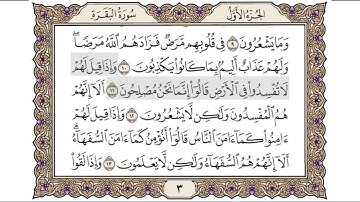 سُورَةُ البَقَرَةِ
الجُزْءُ الأَوَّلُ
وَمَا يَشْعُرُونَ ٩ فِي قُلُوبِهِم مَّرَضٌ فَزَادَهُمُ اللَّهُ مَرَضًا ۖ
وَلَهُمْ عَذَابٌ أَلِيمٌ بِمَا كَانُوا يَكْذِبُونَ ١٠ وَإِذَا قِيلَ لَهُمْ
لَا تُفْسِدُوا فِي الْأَرْضِ قَالُوا إِنَّمَا نَحْنُ مُصْلِحُونَ ١١ أَلَا إِنَّهُمْ
هُمُ الْمُفْسِدُونَ وَلَٰكِن لَّا يَشْعُرُونَ ١٢ وَإِذَا قِيلَ لَهُمْ
ءَامِنُوا كَمَا ءَامَنَ النَّاسُ قَالُوا أَنُؤْمِنُ كَمَا ءَامَنَ السُّفَهَاءُ ۗ
أَلَا إِنَّهُمْ هُمُ السُّفَهَاءُ وَلَٰكِن لَّا يَعْلَمُونَ ١٣ وَإِذَا لَقُوا
٣